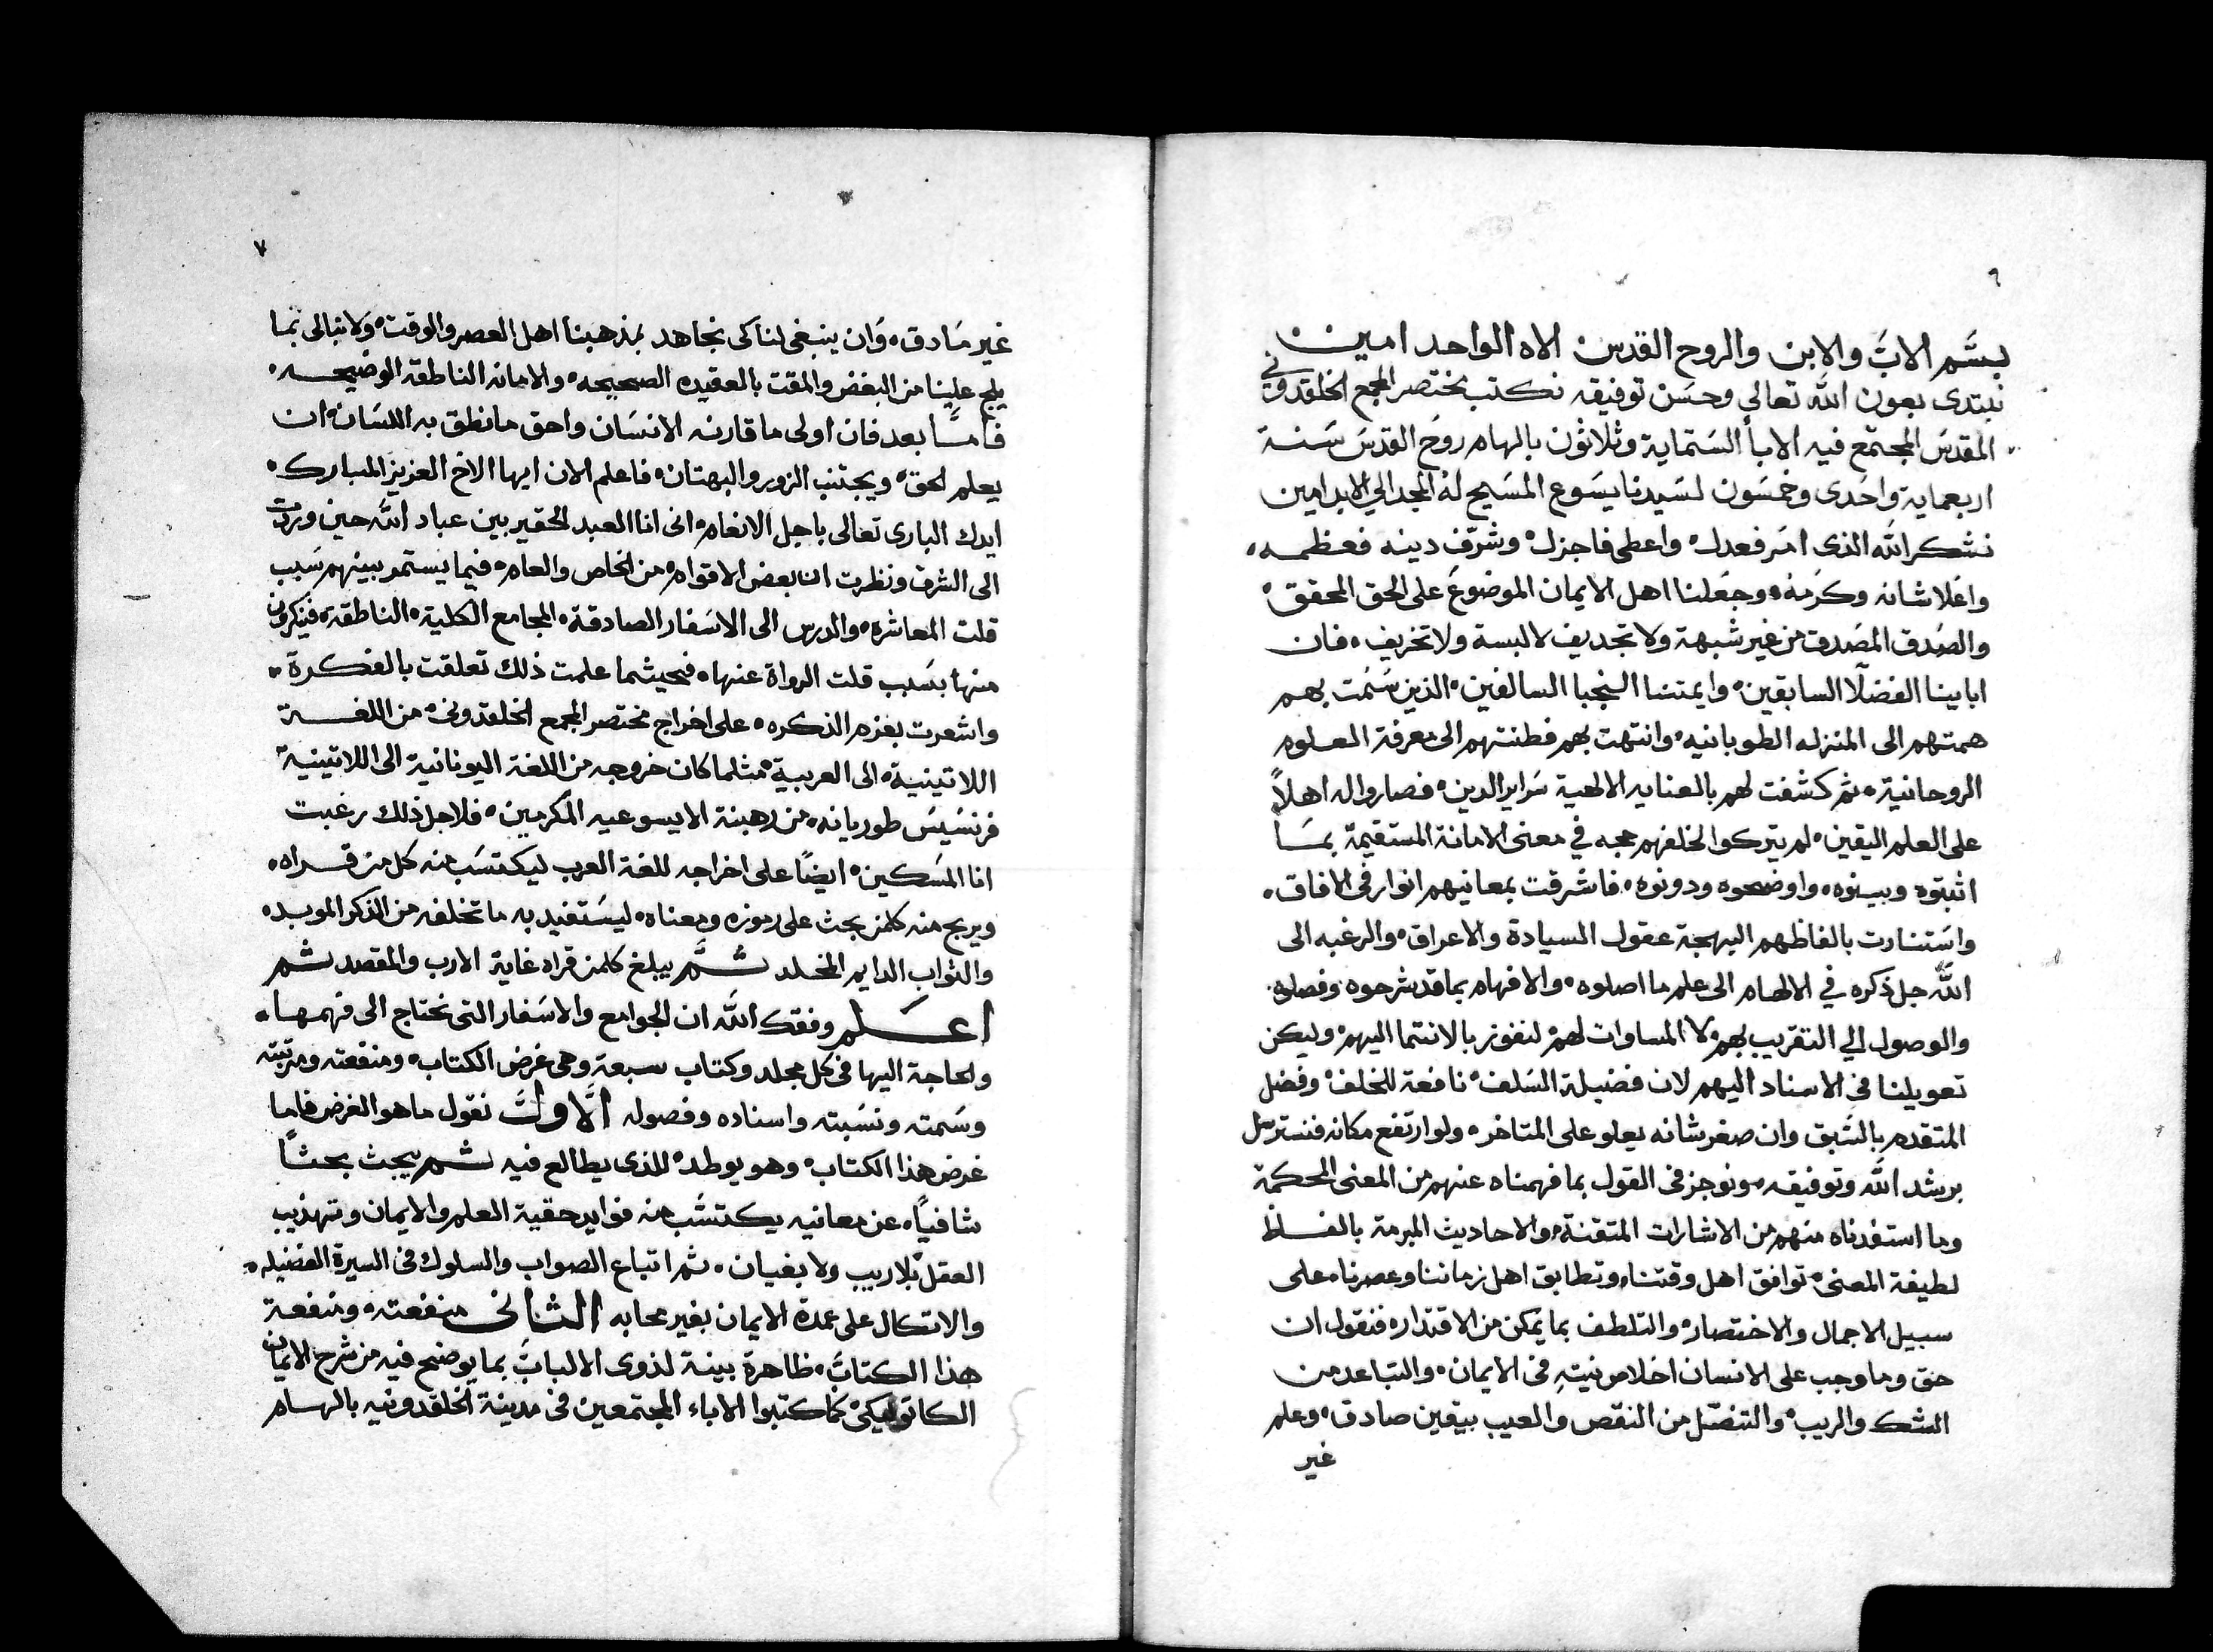 ٦
بسم الاب والابن والروح القدس الاه الواحد امين
نبتدى بعون الله تعالي وحسن توفيقه نكتب مختصر المجمع الخلقدوني
المقدس المجتمع فيه الابأ الستماية وثلاثون بالهام روح القدس سنة
اربعماية واحدى وخمسون لسيدنا يسوع المسيح له المجد الي الابد امين
نشكر الله الذى امر فعدل واعطى فاجزل وشرف دينه فعظمه
واعلا شانه وكرمه وجعلنا اهل الايمان الموضوع على الحق المحقق
والصدق المصدق من غير شبهة ولا تجديف لا لبسة ولا تخريف فان
ابايينا الفضلآ السابقين وايمتنا النجبا السالفين الذين سمت بهم
همتهم الى المنزله الطوبانيه وانتهت بهم فطنتهم الى معرفة العلوم
الروحانية ثم كشفت لهم بالعنايه الالهية سراير الدين فصاروا له اهلاً
على العلم اليقين لم يتركوا لخلفهم حجه في معنى الامانة المستقيمة بما
اثبتوه وبينوه واوضحوه ودونوه فاشرقت بمعانيهم انوار فى الافاق
واستنارت بالفاظهم البهجة عقول السيادة والاعراق والرغبه الى
الله جل ذكره في الالهام الى علم ما اصلوه والافهام بما قد شرحوه وفصلوه
والوصول الي التقريب بهم لا المساوات لهم لنفوز بالانتما اليهم وليكن
تعويلنا فى الاسناد اليهم لان فضيلة السلف نافعة للخلف وفضل
المتقدم بالسبق وان صغر شانه يعلو على المتاخر ولو ارتفع مكانه فنسترسل
برشد الله وتوفيقه ونوجز فى القول بما فهمناه عنهم من المعنى المحكمة
وما استفدناه منهم من الاشارات المتقنة والاحاديث المبرمة بالفاظ
لطيفة المعنى توافق اهل وقتنا وتطابق اهل زماننا وعصرنا على
سبيل الاجمال والاختصار والتلطف بما يمكن من الاقتدار فنقول ان
حق وما وجب على الانسان اخلاص نيته فى الايمان والتباعد من
الشك والريب والتنصل من النقص والعيب بيقين صادق وعلم
غير
٧
غير مادق وان ينبغى لنا كى نجاهد بمذهبنا اهل العصر والوقت ولا نبالى بما
يلج علينا من البغض والمقت بالعقيده الصحيحه والامانه الناطقة الوضيحه
فاما بعد فان اولى ما قارنه الانسان واحق ما نطق به اللسان ان
يعلم الحق ويجتنب الزور والبهتان فاعلم الان ايها الاخ العزيز المبارك
ايدك البارى تعالى باجل الانعام انى انا العبد الحقير بين عباد الله حين وردت
الى الشرق ونظرت ان بعض الاقوام من الخاص والعام فيما يستمر بينهم سبب
قلت المعاشرة والدرس الى الاسفار الصادقة المجامع الكلية الناطقة فينكرون
منها بسبب قلت الرواة عنها فحيثما علمت ذلك تعلقت بالفكرة
واشعرت بعزم الذكره على اخراج مختصر المجمع الخلقدونى من اللغة
اللاتينية الى العربية مثلما كان خروجه من اللغة اليونانية الى اللاتينية
فرنسيس طوريانه من رهبنة الايسوعيه المكرمين فلاجل ذلك رغبت
انا المسكين ايضًا على اخراجه للغة العرب ليكتسب منه كل من قراه
ويربح منه كلمن بحث على رموزه ومعناه ليستفيد به ما تخلفه من الذكر الموبد
والثواب الدايم المخلد ثم يبلغ كلمن قراه غاية الارب والمقصد ثم
اعلم وفقك الله ان الجوامع والاسفار التى نحتاج الى فهمها
والحاجة اليها فى كل مجلد وكتاب سبعة وهى غرض الكتاب ومنفعته ومرتبته
وسمته ونسبته واسناده وفصوله الاول نقول ما هو الغرض فاما
غرض هذا الكتاب وهو يوطد للذى يطالع فيه ثم يبحث بحثًا
شافيًا عن معانيه يكتسب منه فوايد حقية العلم والايمان وتهذيب
العقل بلا ريب ولا بغيان ثم اتباع الصواب والسلوك فى السيرة الفضيله
والاتكال على عمدة الايمان بغير محابه الثانى منفعته ومنفعة
هذا الكتاب ظاهرة بينة لذوى الالباب بما يوضح فيه من شرح الايمان
الكاتوليكى كما كتبوا الاباء المجتمعين فى مدينة الخلقدونيه بالهام